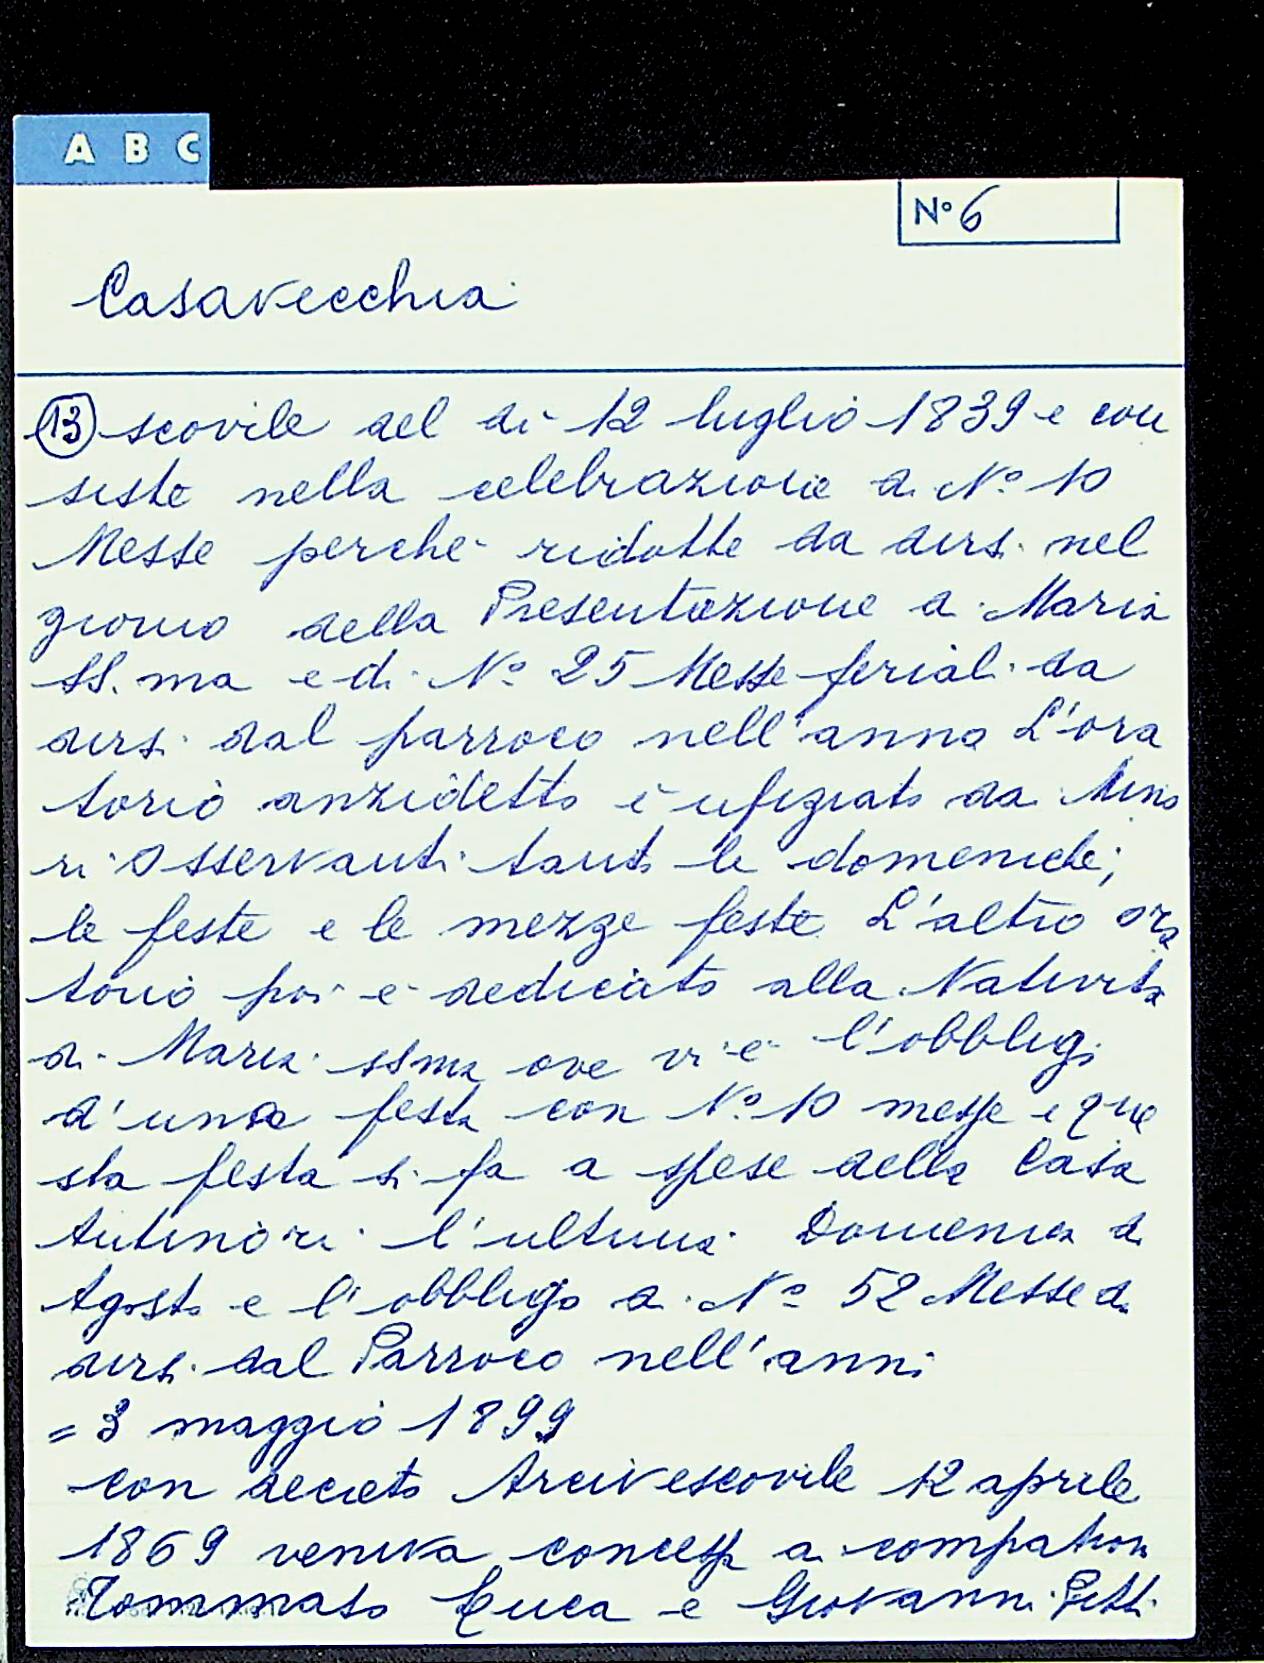 A B C
N° 6
Casavecchia
13 scovile del dì 12 luglio 1839 e con
siste nella celebrazione di N° 10
Messe perchè ridotte da dirsi nel
giorno della Presentazione di Maria
SS.ma e di N° 25 Messe feriali da
dirsi dal parroco nell'anno L'ora
torio anzidetto è ufiziato da Mino
ri Osservanti tanto le domeniche;
le feste e le mezze feste L'altro ora
torio poi è dedicato alla Natività
di Maria ssma ove vi è l'obbligo
d'una festa con N° 10 messe e que
sta festa si fa a spese della Casa
Antinori l'ultima Domenica di
Agosto e l'obbligo di N° 52 Messe da
dirsi dal Parroco nell'anno
= 3 maggio 1899
con decreto Arcivescovile 12 aprile
1869 veniva concesso ai compatroni
Tommaso Cuca e Giovanni